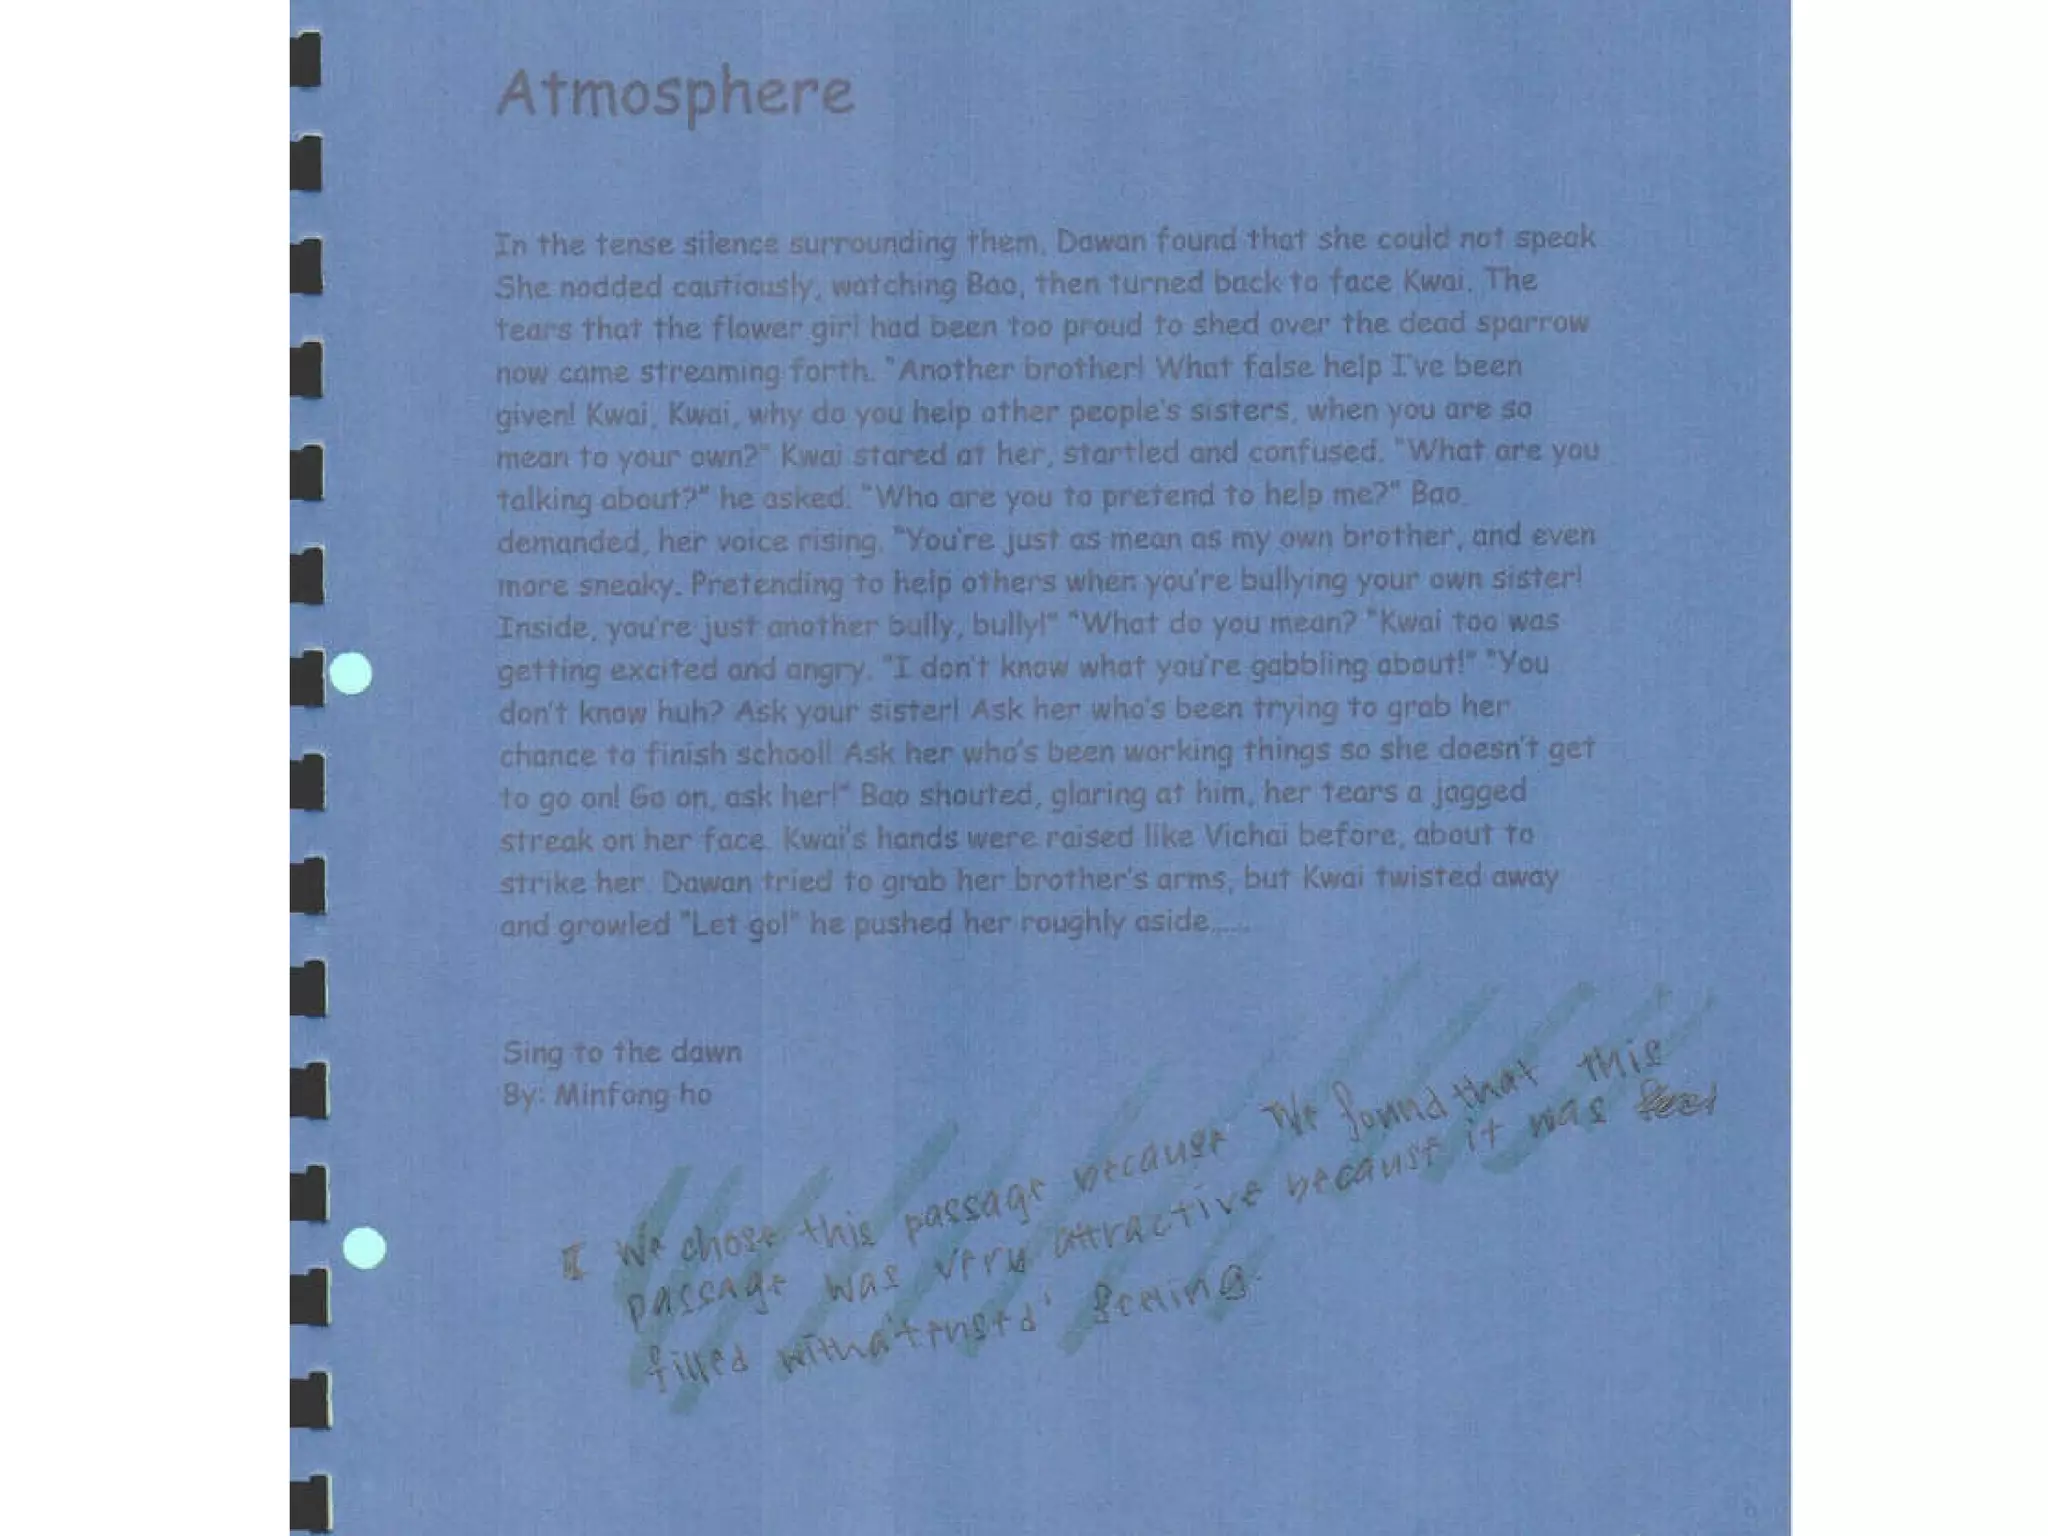 Atmosphere
In the tense silence surrounding them, Dawan found that she could not speak
She nodded cautiously, watching Bao, then turned back to face Kwai. The
tears that the flower girl had been too proud to shed over the dead sparrow
now came streaming forth. "Another brother! What false help I've been
given! Kwai, Kwai, why do you help other people's sisters, when you are so
mean to your own?" Kwai stared at her, startled and confused. "What are you
talking about?" he asked. "Who are you to pretend to help me?" Bao
demanded, her voice rising. "You're just as mean as my own brother, and even
more sneaky. Pretending to help others when you're bullying your own sister!
Inside, you're just another bully, bully!" "What do you mean? "Kwai too was
getting excited and angry. "I don't know what you're gabbling about!" "You
don't know huh? Ask your sister! Ask her who's been trying to grab her
chance to finish school! Ask her who's been working things so she doesn't get
to go on! Go on, ask her!" Bao shouted, glaring at him, her tears a jagged
streak on her face. Kwai's hands were raised like Vichai before, about to
strike her. Dawan tried to grab her brother's arms, but Kwai twisted away
and growled "Let go!" he pushed her roughly aside......
Sing to the dawn
By: Minfong ho
We chose this passage because We found that this
passage was very attractive because it was
filled with a 'tensed' feeling.